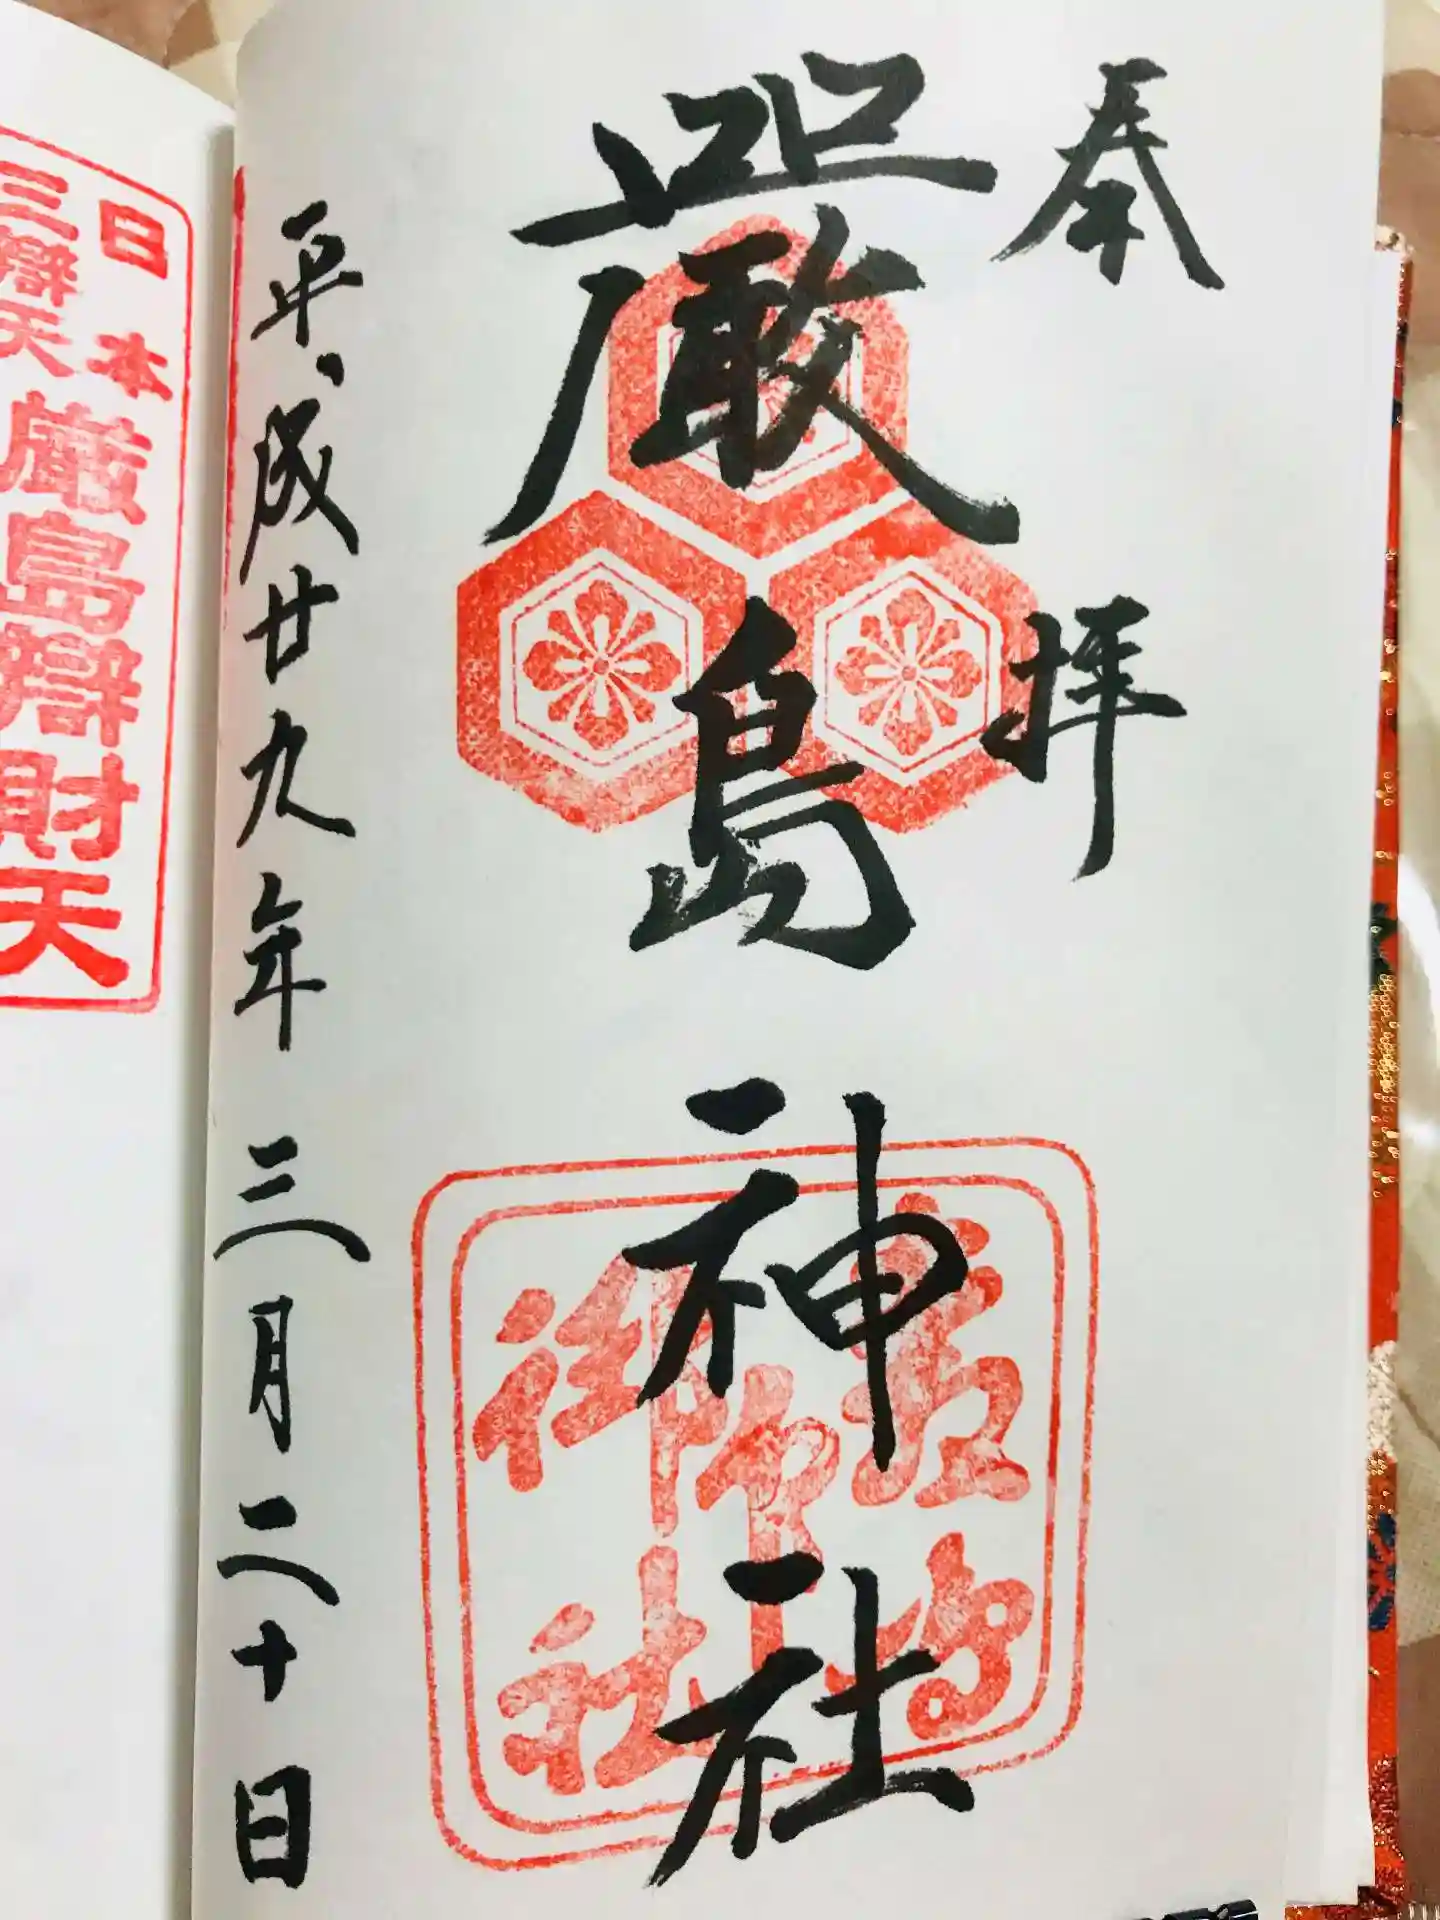 奉拝
嚴島神社
平成廿九年三月二十日
嚴島
神
御社
日本
三辯天
厳島辯財天